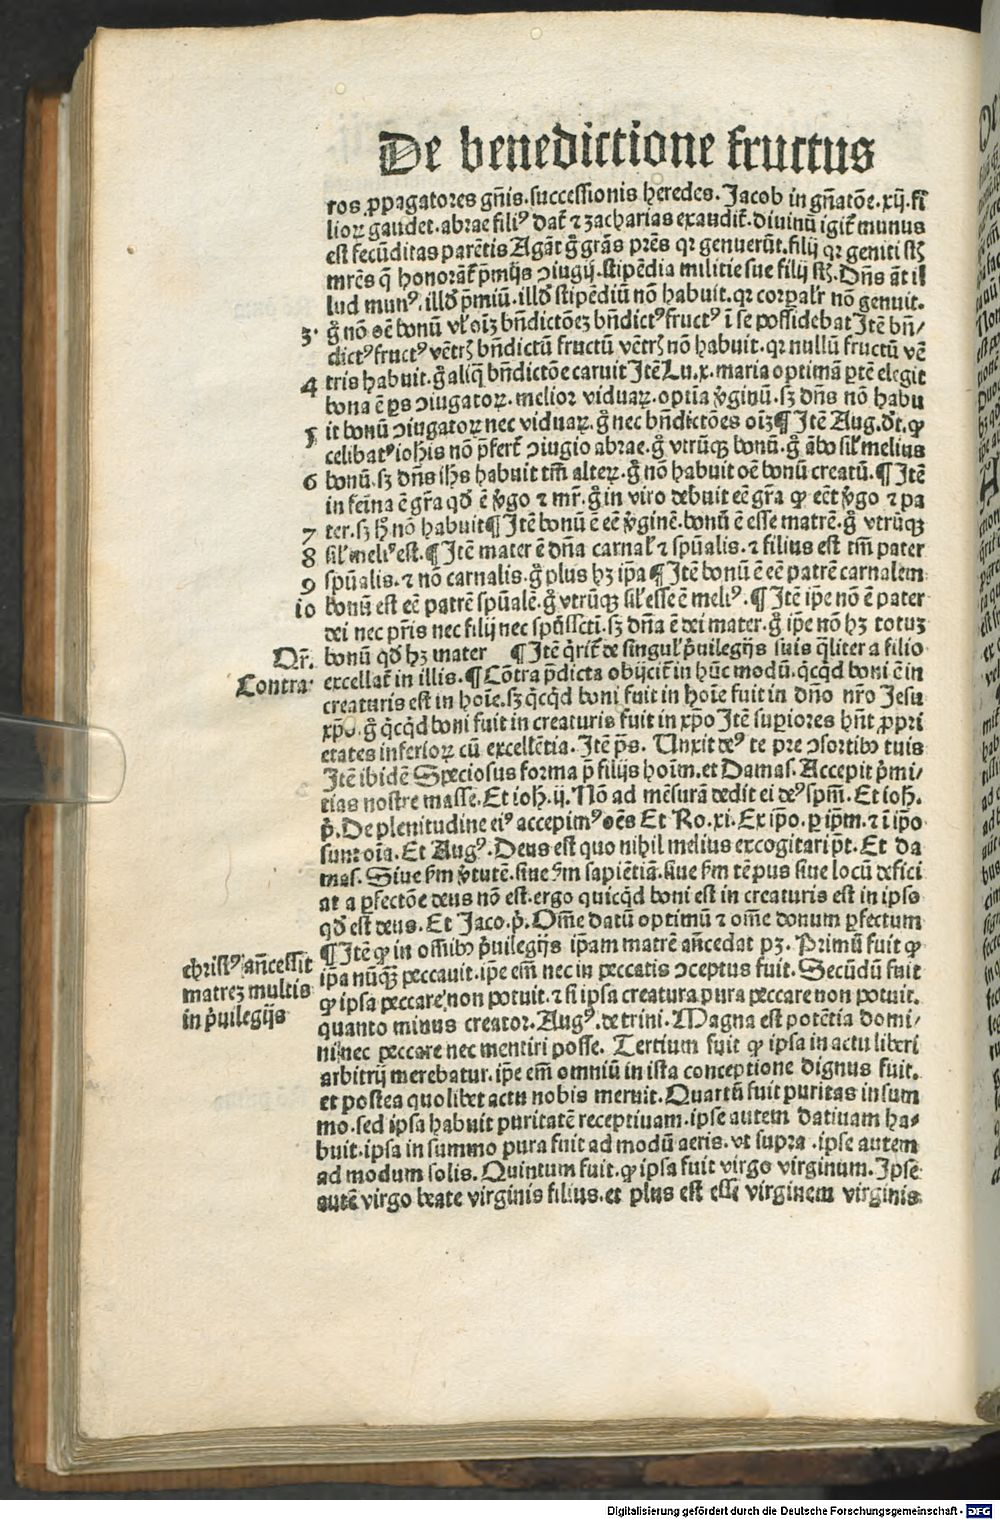 De benedictione fructus
ros ꝓpagatores gn̄is. successionis heredes. Jacob in gn̄atōe. xij. fi
lioꝝ gaudet. abrae filiꝰ dat̄ ⁊ zacharias exaudit̄. diuinū igit̄ munus
est fecūditas parētis Agāt g̊ grās prēs qꝛ genuerūt. filij qꝛ geniti st̄ꝫ
mrēs q̄ honorāt̄ p̄mijs ↄiugij. stipēdia militie sue filij stꝫ. Dn̄s āt il
lud munꝰ, illd̄ p̄miū. illd̄ stipēdiū nō habuit. qꝛ corꝑal'r nō genuit.
3. g̊ nō oē bonū vl' oīꝫ bn̄dictōeꝫ bn̄dictꝰ fructꝰ ī se possidebat Jtē bn̄/
dictꝰ fructꝰ vētrꝭ bn̄dictū fructū vētrꝭ nō habuit. qꝛ nullū fructū vē
4 tris habuit. g̊ aliq̄ bn̄dictōe caruit Jtē Lu. x. maria optimā ꝑtē elegit
bona ē ꝑs ↄiugatoꝝ. melior viduaꝝ. optīa v̊ginū. sꝫ dn̄s nō habu
5 it bonū ↄiugatoꝝ nec viduaꝝ. g̊ nec bn̄dictōes oīꝫ ¶ Jtē Aug. dt̄. ꝙ
celibatꝰ iohīs nō p̄fert̄ ↄiugio abrae. g̊ vtrūqꝫ bonū. g̊ ābo sil' melius
6 bonū. sꝫ dn̄s ihs habuit tm̄ alteꝝ. g̊ nō habuit oē bonū creatū. ¶ Jtē
in feīna ē gr̄a qd̄ ē v̊go ⁊ mr̄. g̊ in viro debuit eē gr̄a ꝙ eēt v̊go ⁊ pa
7 ter. sꝫ h̄ nō habuit ¶ Jtē bonū ē eē v̊ginē. bonū ē esse matrē. g̊ vtrūqꝫ
8 sil' meliꝰ est. ¶ Jtē mater ē dn̄a carnal' ⁊ spūalis. ⁊ filius est tm̄ pater
9 spūalis. ⁊ nō carnalis. g̊ plus hꝫ ip̄a ¶ Jtē bonū ē eē patrē carnalem
io bonū est eē patrē spūalē. g̊ vtrūqꝫ sil' esse ē meliꝰ. ¶ Jtē ip̄e nō ē pater
dei nec pr̄is nec filij nec spūssctī. sꝫ dn̄a ē dei mater. g̊ ip̄e nō hꝫ totuꝫ
Qr̄. bonū qd̄ hꝫ mater ¶ Jtē q̊rit̄ de singul' p̊uilegijs suis q̄liter a filio
Contra. excellat̄ in illis. ¶ Cōtra p̄dicta obijcit̄ in hūc modū. q̊cq̊d boni ē in
creaturis est in hoīe. sꝫ q̊cq̊d boni fuit in hoīe fuit in dn̄o nr̄o Jesu
xp̄o. g̊ q̊cq̊d boni fuit in creaturis fuit in xp̄o Jtē suꝑiores hn̄t ꝓpri
etates inferioꝝ cū excellētia. Jtē p̄s. Vnxit deꝰ te pre ↄsortibꝰ tuis
Jtē ibidē Speciosus forma p̄ filijs hoīm. et Damas. Accepit p̊mi/
tias nostre masse. Et ioh. ij. Nō ad mēsurā dedit ei deꝰ spm̄. Et ioh.
p̊. De plenitudine eiꝰ accepimꝰ oēs Et Ro. xi. Ex ip̄o. ꝑ ip̄m. ⁊ ī ip̄o
sunt oīa. Et Augꝰ. Deus est quo nihil melius excogitari pt̄. Et da
mas. Siue ẜm v̊tutē. siue ẜm sapiētiā. siue ẜm tēpus siue locū defici
at a ꝑfectōe deus nō est. ergo quicq̊d boni est in creaturis est in ipso
qd̄ est deus. Et Jaco. p̊. Om̄e datū optimū ⁊ om̄e donum ꝑfectum
¶ Jtē ꝙ in oīībꝰ p̊uilegijs ip̄am matrē an̄cedat pꝫ. Primū fuit ꝙ
christꝰ an̄cessit
matreꝫ multis
in p̊uilegijs
ip̄a nūq̄ꝫ peccauit. ip̄e em̄ nec in peccatis ↄceptus fuit. Secūdū fuit
ꝙ ipsa peccare non potuit. ⁊ si ipsa creatura pura peccare non potuit.
quanto minus creator. Augꝰ. de trini. Magna est potētia domi/
ni nec peccare nec mentiri posse. Tertium fuit ꝙ ipsa in actu liberi
arbitrij merebatur. ip̄e em̄ omniū in ista conceptione dignus fuit.
et postea quolibet actu nobis meruit. Quartū fuit puritas in sum
mo. sed ipsa habuit puritatē receptiuam. ipse autem datiuam ha/
buit. ipsa in summo pura fuit ad modū aeris. vt supra. ipse autem
ad modum solis. Quintum fuit. ꝙ ipsa fuit virgo virginum. Jpse
autē virgo beate virginis filius. et plus est esse virginem virginis
Digitalisierung gefördert durch die Deutsche Forschungsgemeinschaft - DFG